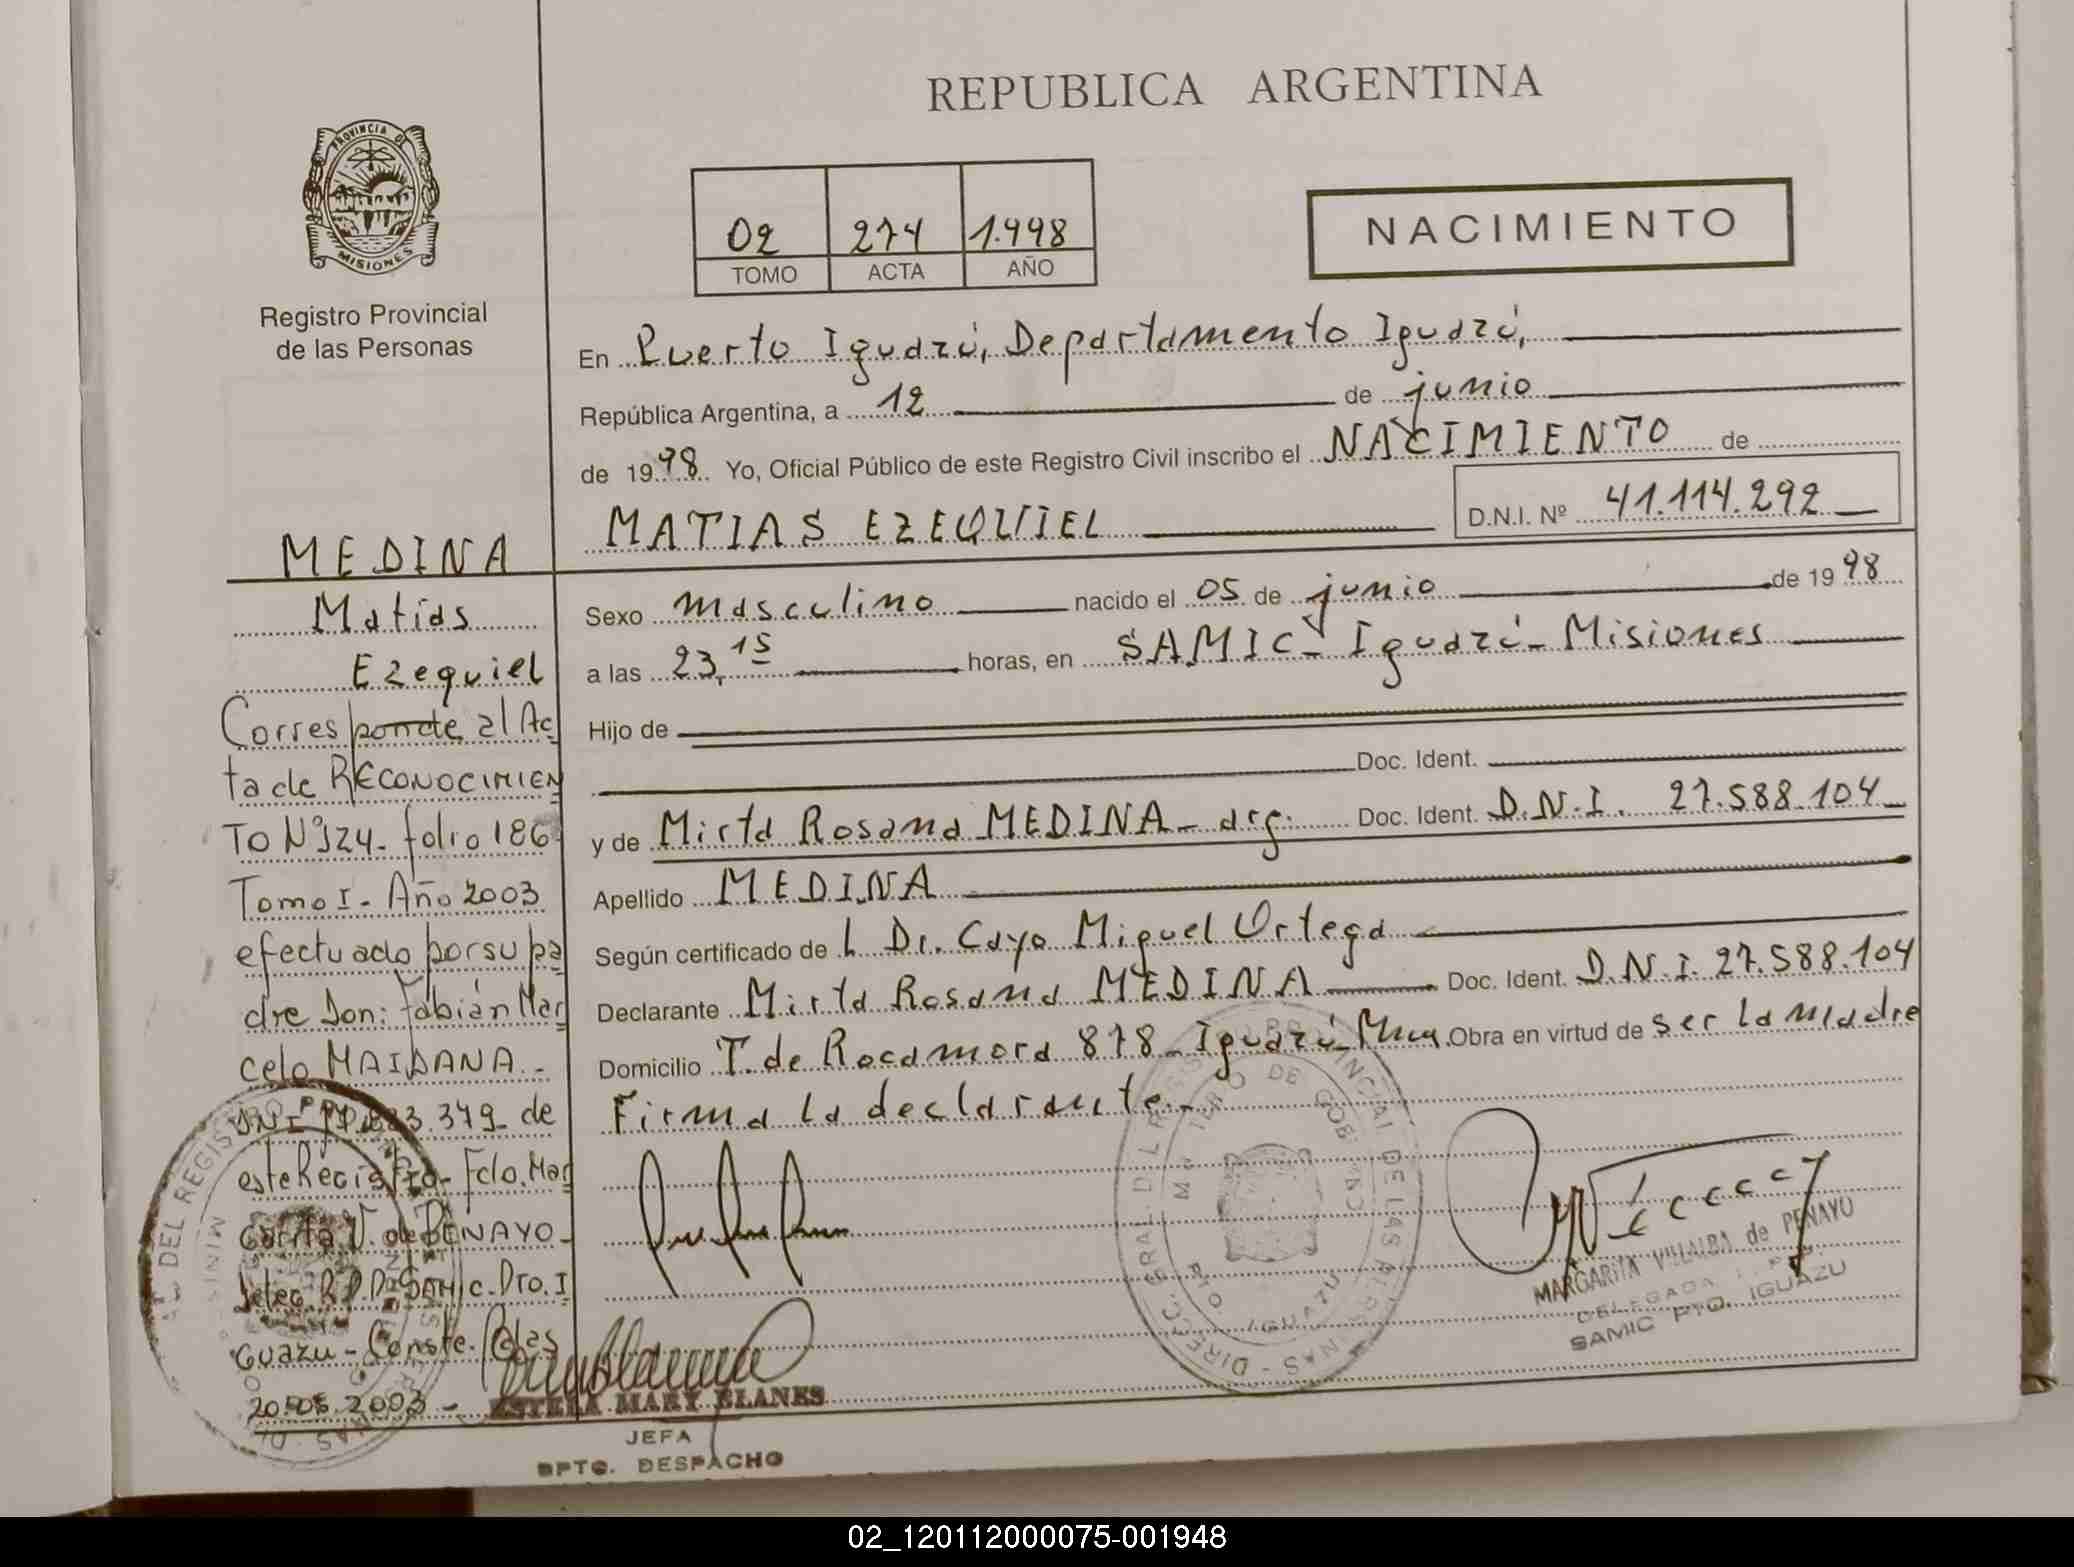 REPUBLICA ARGENTINA
PROVINCIA DE
MISIONES
Registro Provincial
de las Personas
02 274 1.998
TOMO ACTA AÑO
NACIMIENTO
En Puerto Iguazú, Departamento Iguazú,
República Argentina, a 12 de junio
de 1998. Yo, Oficial Público de este Registro Civil inscribo el NACIMIENTO de
MATIAS EZEQUIEL D.N.I. Nº 41.114.292
Sexo masculino nacido el 05 de junio de 1998
a las 23,15 horas, en SAMIC - Iguazú - Misiones
Hijo de
Doc. Ident.
y de Mirta Rosana MEDINA - arg. Doc. Ident. D.N.I. 27.588.104
Apellido MEDINA
Según certificado de l Dr. Cayo Miguel Ortega
Declarante Mirta Rosana MEDINA Doc. Ident. D.N.I. 27.588.104
Domicilio T. de Rocamora 878 - Iguazú - Mnes. Obra en virtud de ser la madre
Firma la declarante.-
MEDINA
Matías
Ezequiel
Corresponde al Ac
ta de RECONOCIMIEN
TO Nº 124 - folio 186
Tomo I - Año 2003
efectuado por su pa
dre Don: Fabián Mar
celo MAIDANA.-
DNI 379 - de
este Registro - Fdo. Mar
garita V. de PENAYO -
Deleg. R.P.P. SAMIC. Pto. I
GUAZU - Conste. Pdas
20.05.2003 -
ESTELA MARY BLANES
JEFA
DPTO. DESPACHO
MARGARITA VILLALBA de PENAYO
DELEGADA
SAMIC PTO. IGUAZU
02_120112000075-001948